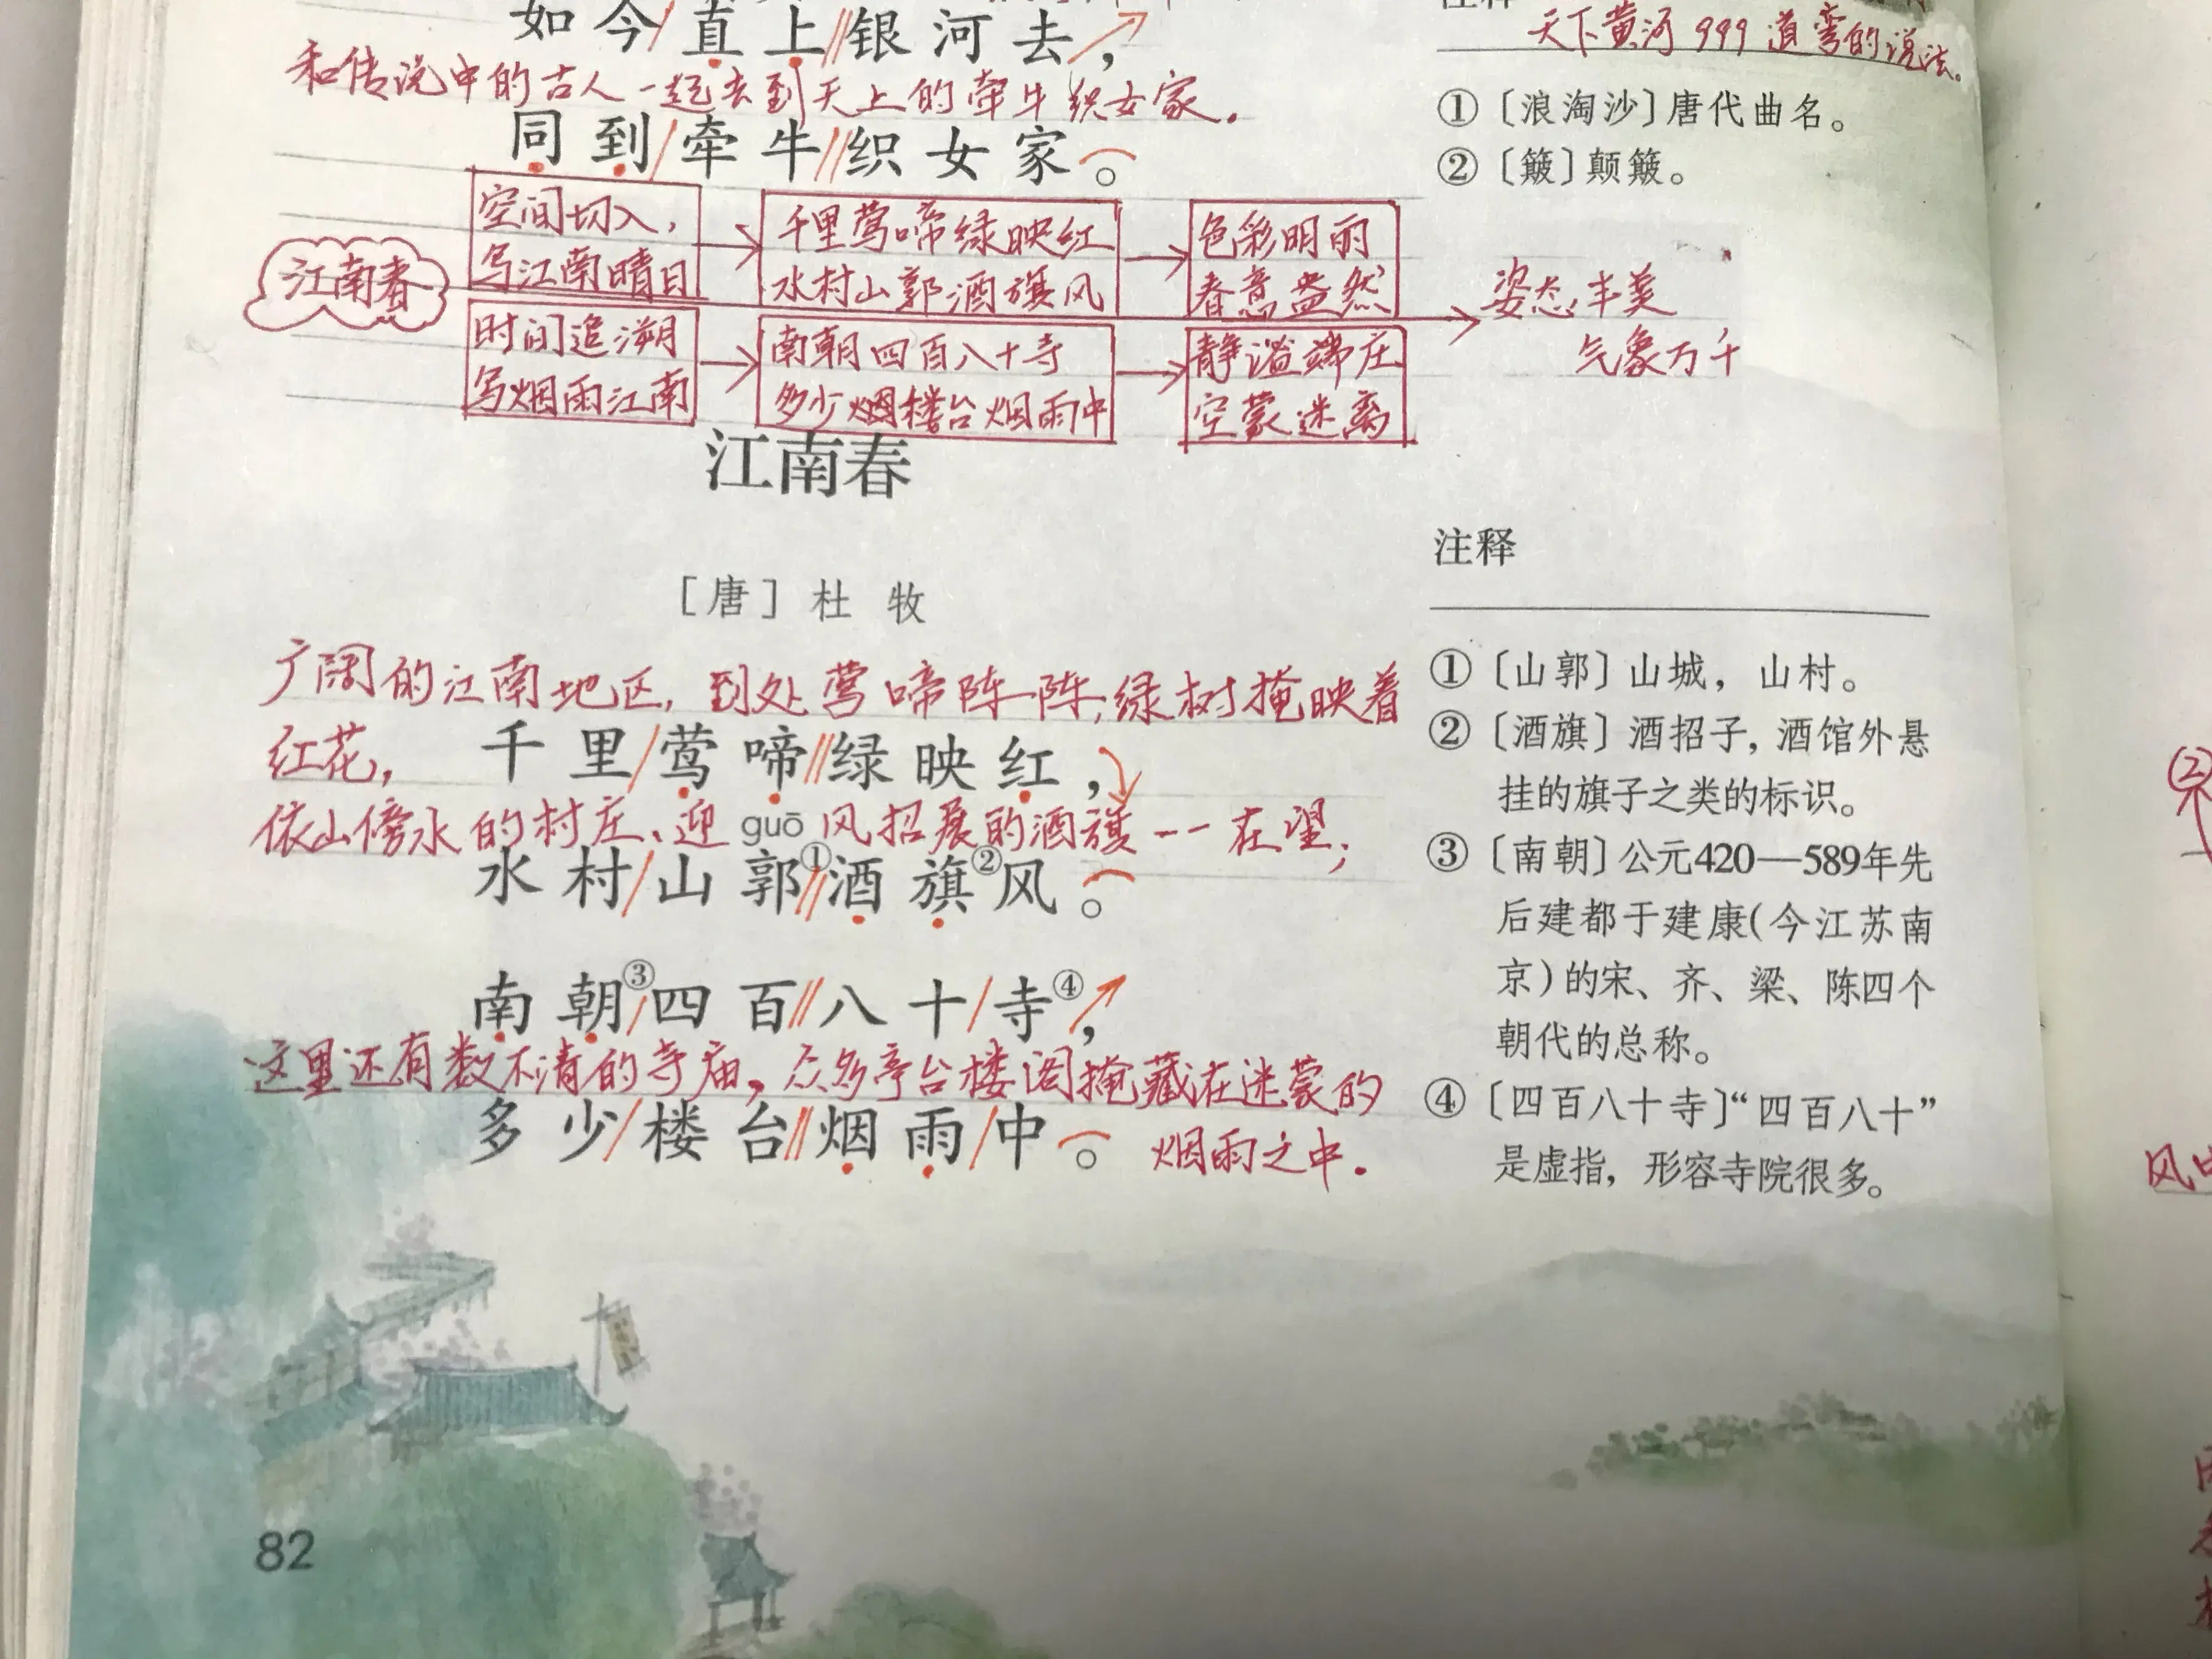 如今/直上//银河去，
和传说中的古人一起去到天上的牵牛织女家。
同到/牵牛//织女家。
天下黄河999道弯的说法。
①〔浪淘沙〕唐代曲名。
②〔簸〕颠簸。
江南春
空间切入，
写江南晴日
千里莺啼绿映红
水村山郭酒旗风
色彩明丽
春意盎然
时间追溯
写烟雨江南
南朝四百八十寺
多少楼台烟雨中
静谧端庄
空蒙迷离
姿态丰美
气象万千
江南春
［唐］杜牧
广阔的江南地区，到处莺啼阵阵，绿树掩映着
红花，
千里/莺啼//绿映红，
依山傍水的村庄、迎风招展的酒旗一一在望；
guō
水村/山郭①//酒旗②风。
南朝③/四百//八十/寺④，
这里还有数不清的寺庙，众多亭台楼阁掩藏在迷蒙的
多少/楼台//烟雨/中。
烟雨之中。
注释
①〔山郭〕山城，山村。
②〔酒旗〕酒招子，酒馆外悬
挂的旗子之类的标识。
③〔南朝〕公元420—589年先
后建都于建康（今江苏南
京）的宋、齐、梁、陈四个
朝代的总称。
④〔四百八十寺〕“四百八十”
是虚指，形容寺院很多。
82
②